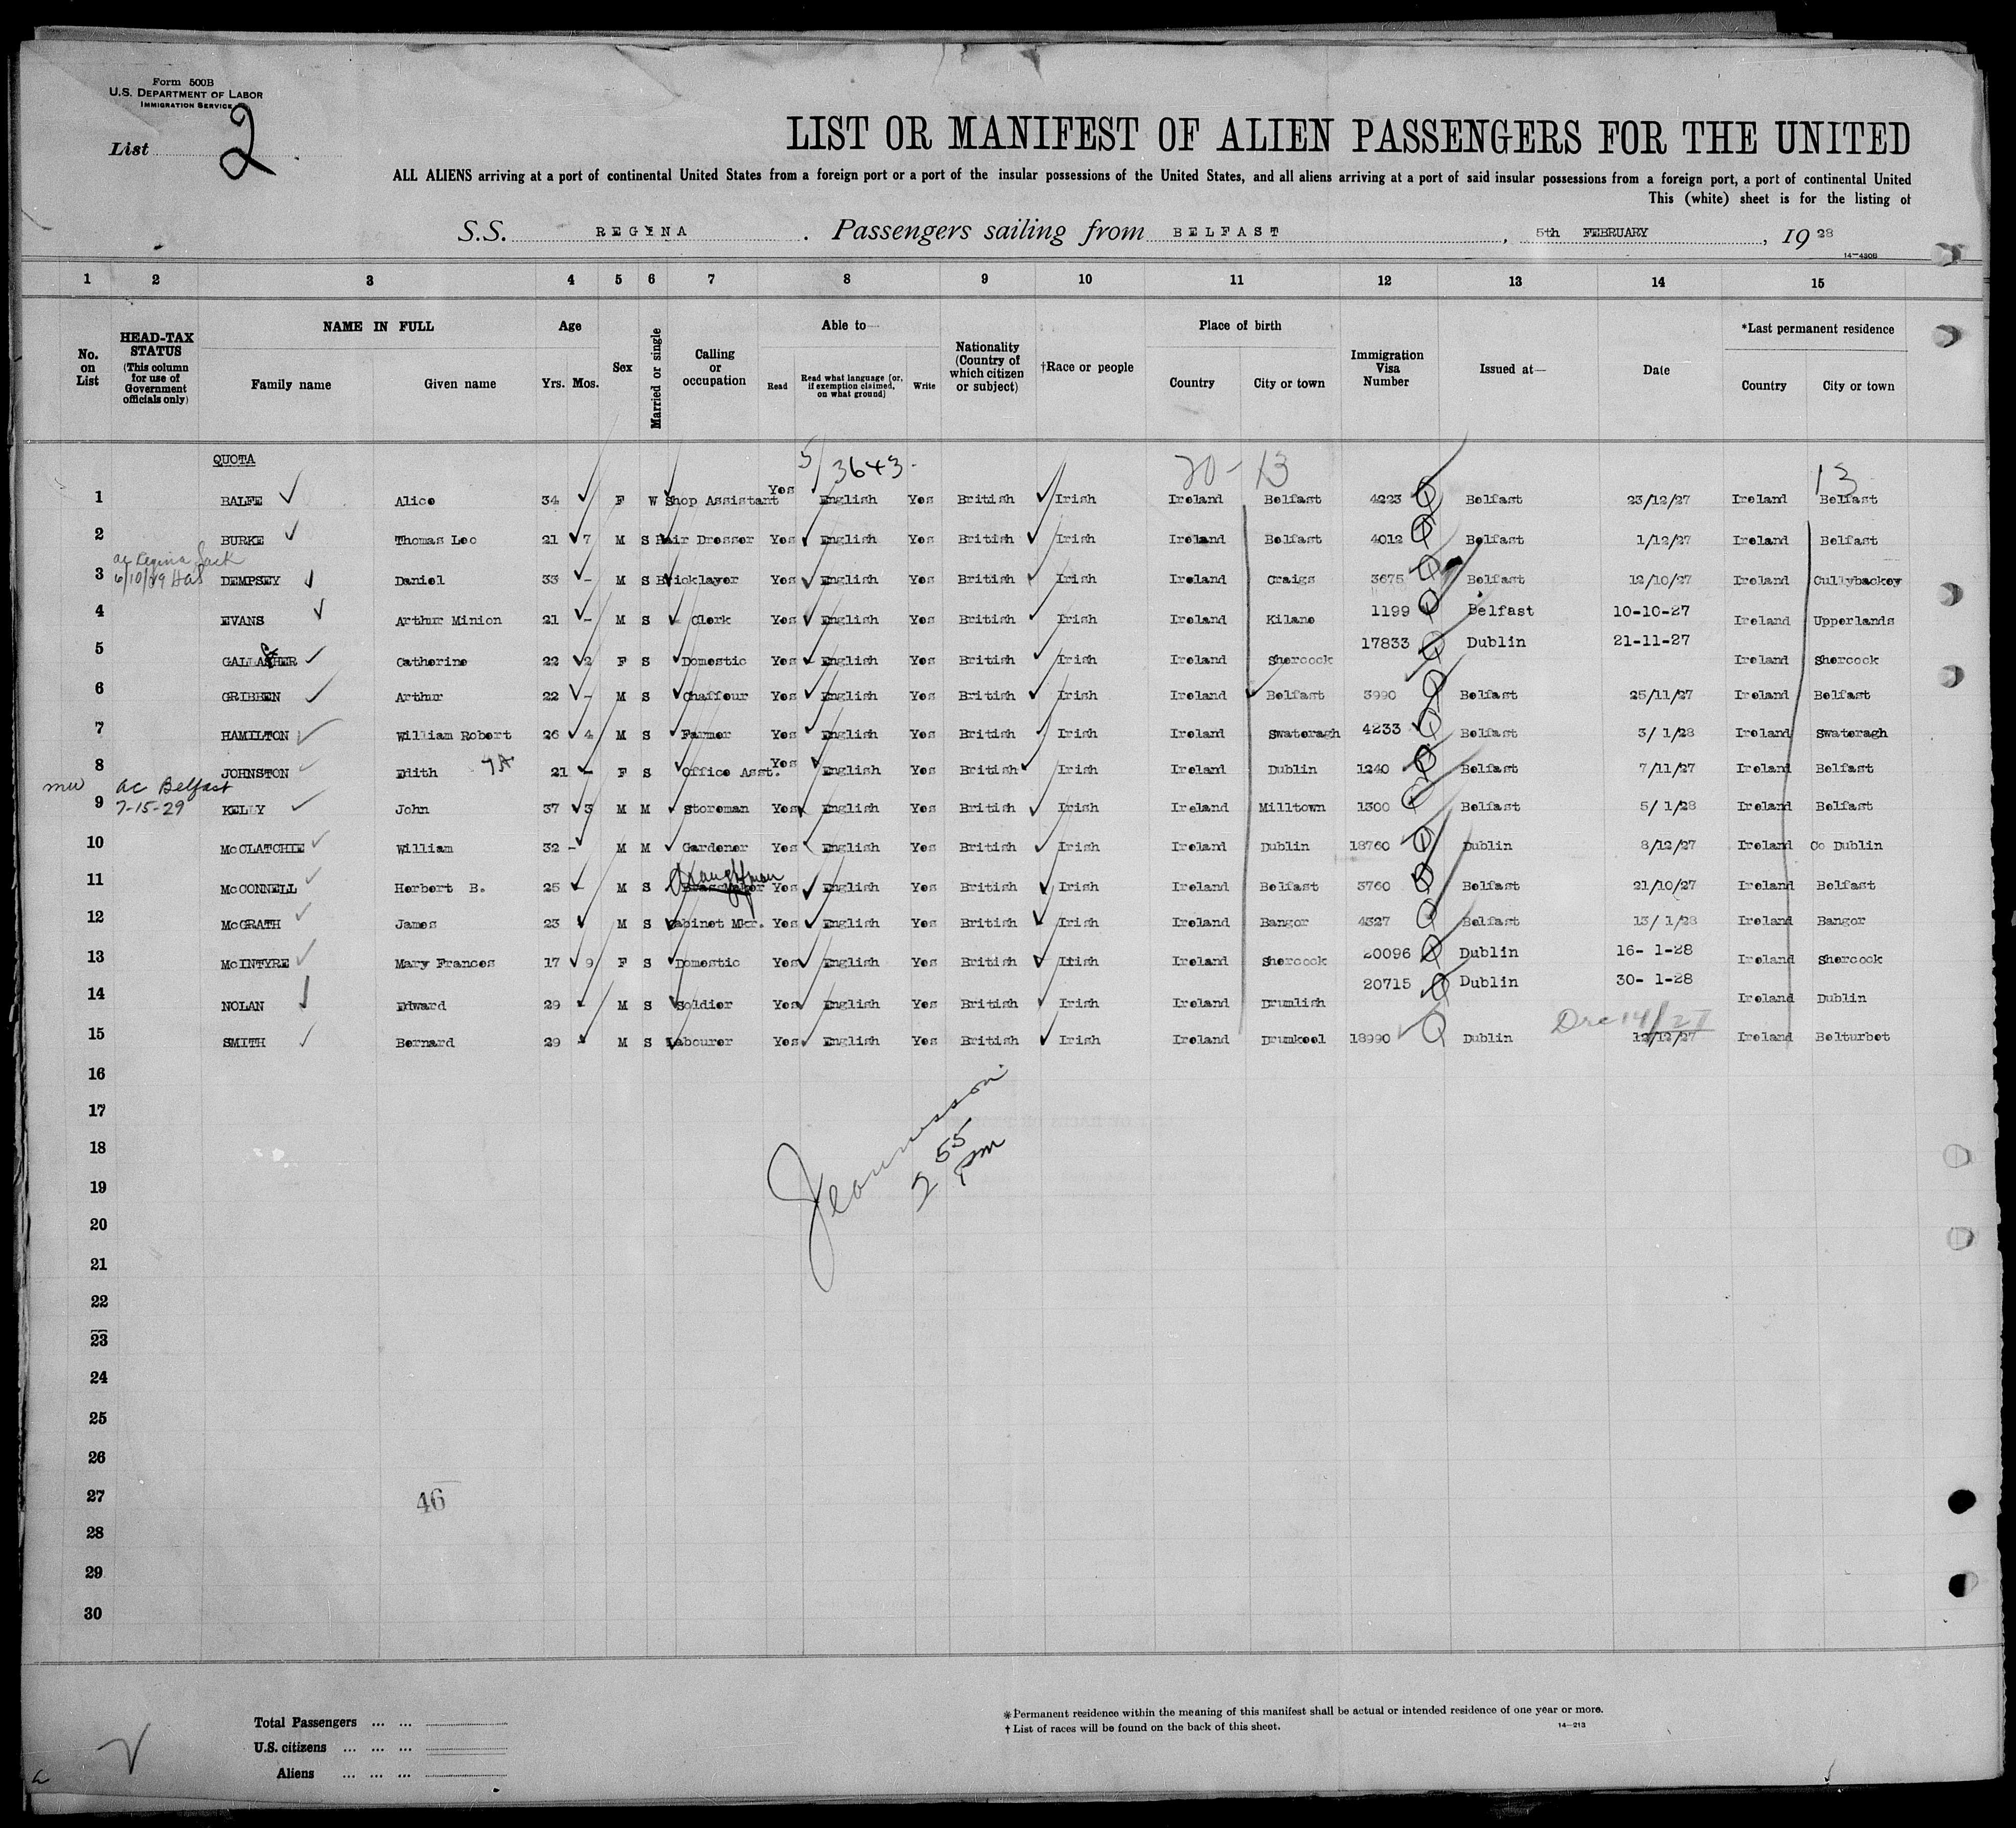 Form 500B
U.S. DEPARTMENT OF LABOR
IMMIGRATION SERVICE
List 2
LIST OR MANIFEST OF ALIEN PASSENGERS FOR THE UNITED
ALL ALIENS arriving at a port of continental United States from a foreign port or a port of the insular possessions of the United States, and all aliens arriving at a port of said insular possessions from a foreign port, a port of continental United
This (white) sheet is for the listing of
S.S. REGINA. Passengers sailing from BELFAST, 5th FEBRUARY, 1928
14-430B
1 2 3 4 5 6 7 8 9 10 11 12 13 14 15
No. on List
HEAD-TAX STATUS (This column for use of Government officials only)
NAME IN FULL Family name Given name
Age Yrs. Mos.
Sex
Married or single
Calling or occupation
Able to— Read Read what language [or, if exemption claimed, on what ground] Write
Nationality (Country of which citizen or subject)
†Race or people
Place of birth Country City or town
Immigration Visa Number
Issued at—
Date
*Last permanent residence Country City or town
QUOTA 5/3643 20-13 13
1 BALFE Alice 34 F W Shop Assistant Yes English Yes British Irish Ireland Belfast 4223 Q Belfast 23/12/27 Ireland Belfast
2 BURKE Thomas Leo 21 7 M S Hair Dresser Yes English Yes British Irish Ireland Belfast 4012 Q Belfast 1/12/27 Ireland Belfast
6/10/29
3 DEMPSEY Daniel 33 - M S Bricklayer Yes English Yes British Irish Ireland Craigs 3675 Q Belfast 12/10/27 Ireland Cullybackey
4 EVANS Arthur Minion 21 - M S Clerk Yes English Yes British Irish Ireland Kilane 1199 Q Belfast 10-10-27 Ireland Upperlands
5 GALLAGHER Catherine 22 2 F S Domestic Yes English Yes British Irish Ireland Shercock 17833 Q Dublin 21-11-27 Ireland Shercock
6 GRIBBEN Arthur 22 - M S Chaffeur Yes English Yes British Irish Ireland Belfast 3990 Q Belfast 25/11/27 Ireland Belfast
7 HAMILTON William Robert 26 4 M S Farmer Yes English Yes British Irish Ireland Swateragh 4233 Q Belfast 3/ 1/28 Ireland Swateragh
8 JOHNSTON Edith 21 - F S Office Asst. Yes English Yes British Irish Ireland Dublin 1240 Q Belfast 7/11/27 Ireland Belfast
ac Belfast
9 7-15-29 KELLY John 37 3 M M Storeman Yes English Yes British Irish Ireland Milltown 1300 Q Belfast 5/ 1/28 Ireland Belfast
10 McCLATCHIE William 32 - M M Gardener Yes English Yes British Irish Ireland Dublin 18760 Q Dublin 8/12/27 Ireland Co Dublin
Draughtman
11 McCONNELL Herbert B. 25 - M S Yes English Yes British Irish Ireland Belfast 3760 Q Belfast 21/10/27 Ireland Belfast
12 McGRATH James 23 M S Cabinet Mkr. Yes English Yes British Irish Ireland Bangor 4327 Q Belfast 13/ 1/28 Ireland Bangor
13 McINTYRE Mary Frances 17 9 F S Domestic Yes English Yes British Irish Ireland Shercock 20096 Q Dublin 16- 1-28 Ireland Shercock
14 NOLAN Edward 29 - M S Soldier Yes English Yes British Irish Ireland Drumlish 20715 Q Dublin 30- 1-28 Ireland Dublin
Dec 14/27
15 SMITH Bernard 29 - M S Labourer Yes English Yes British Irish Ireland Drumkeel 18990 Q Dublin 12/12/27 Ireland Belturbet
16
17
18
2 55 pm
19
20
21
22
23
24
25
26
27
46
28
29
30
Total Passengers ... ...
U.S. citizens ... ... ...
Aliens ... ... ...
*Permanent residence within the meaning of this manifest shall be actual or intended residence of one year or more.
†List of races will be found on the back of this sheet.
14-213